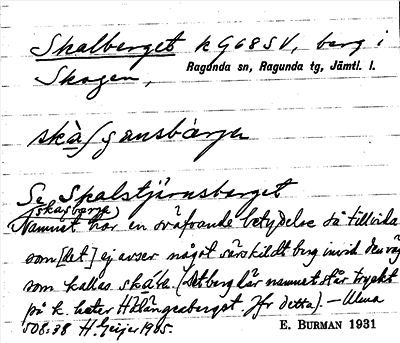 Skalberget k G68SV, berg i
Skogen, Ragunda sn, Ragunda tg, Jämtl. l.
Se Skalstjärnsberget
Namnet har en svävande betydelse så tillvida
som [det] ej avser något särskildt berg invid den väg
som kallas (det berg där namnet står tryckt
på k. heter Hälängesberget Jfr detta) – Ulma
508:38 H. Geijer 1905.
E. BURMAN 1931